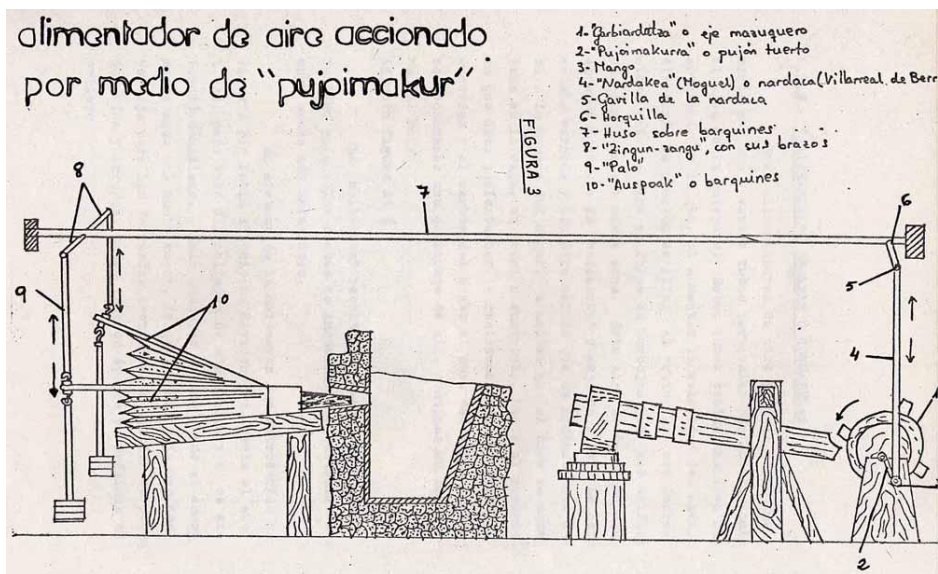 alimentador de aire accionado
por medio de "pujoimakur"
FIGURA 3
1-"Garbiardatza" o eje mazuquero
2-"Pujoimakurra" o pujón tuerto
3-Mango
4-"Nardakea" (Moguel) o nardaca (Villarreal de Berr
5-Gavilla de la nardaca
6-Horquilla
7-Huso sobre barquines
8-"Zingun-zangu", con sus brazos
9-"Palo"
10-"Auspoak" o barquines
8
7
6
5
9
10
4
2